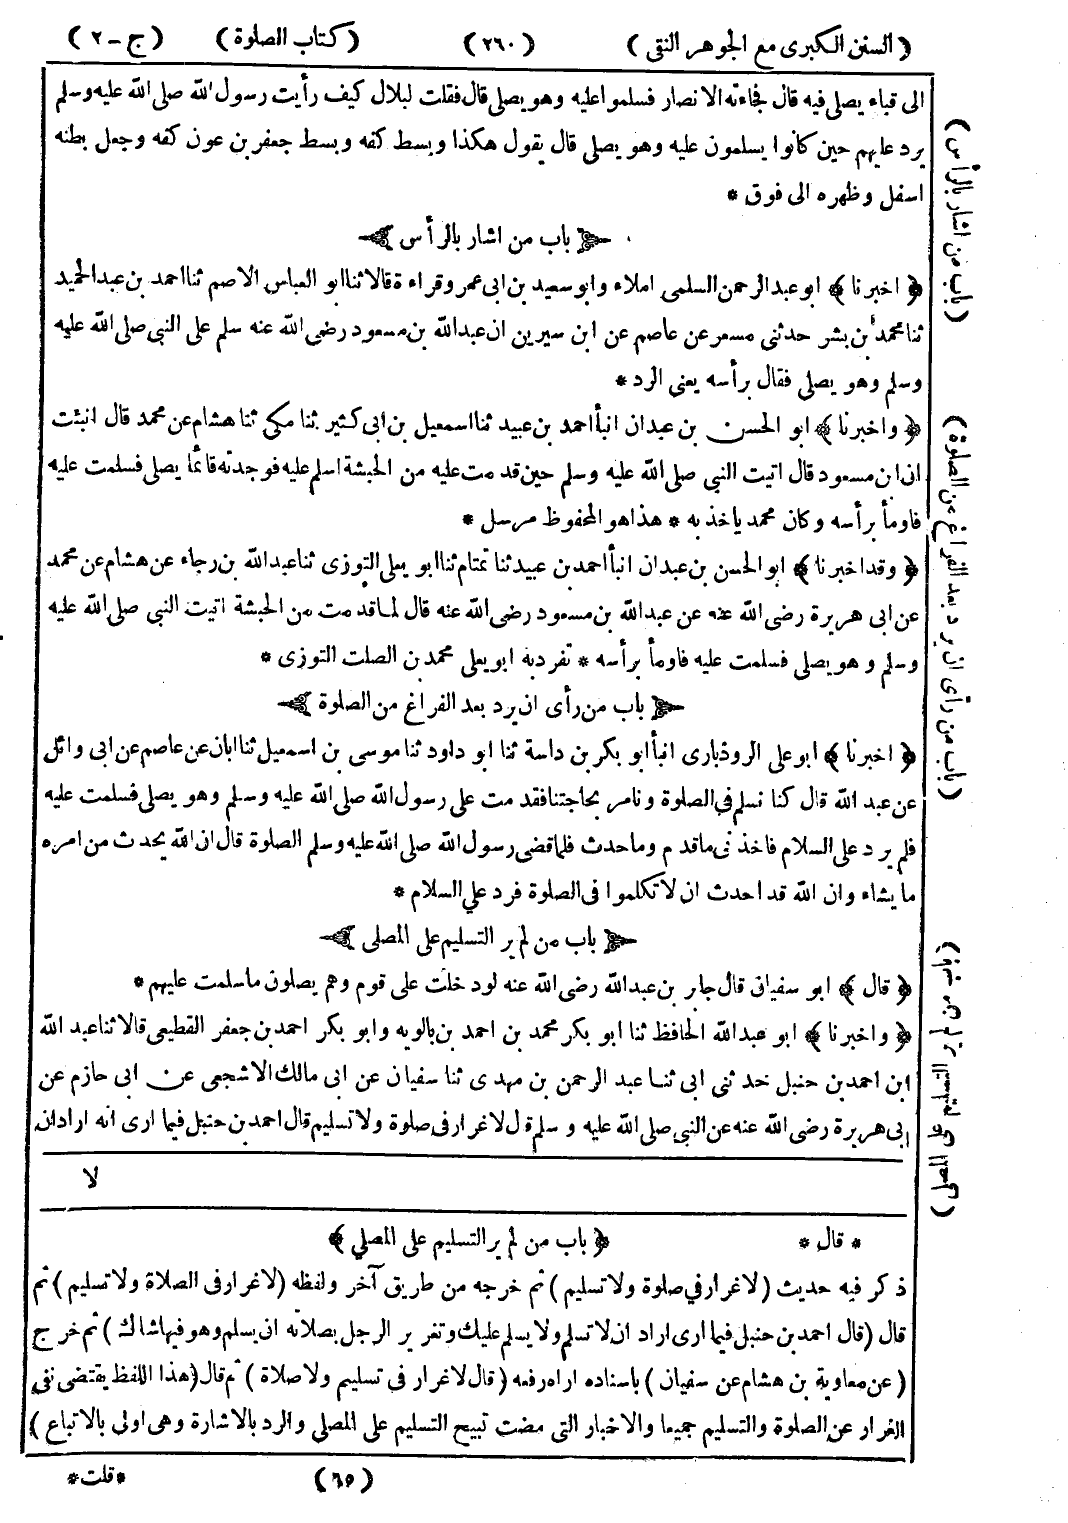 (السنن الكبرى مع الجوهر النقى) (٢٦٠) (كتاب الصلوة) (ج-٢)
الى قباء يصلى فيه قال فجاءته الانصار فسلموا عليه وهو يصلى قال فقلت لبلال كيف رأيت رسول الله صلى الله عليه وسلم
يرد عليهم حين كانوا يسلمون عليه وهو يصلى قال يقول هكذا وبسط كفه وبسط جعفر بن عون كفه وجعل بطنه
اسفل وظهره الى فوق *
باب من اشار بالرأس
﴿اخبرنا﴾ ابو عبد الرحمن السلمى املاء وابو سعيد بن ابى عمرو قراءة قالا ثنا ابو العباس الاصم ثنا احمد بن عبد الحميد
ثنا محمد بن بشر حدثنى مسعر عن عاصم عن ابن سيرين ان عبد الله بن مسعود رضى الله عنه سلم على النبى صلى الله عليه
وسلم وهو يصلى فقال برأسه يعنى الرد *
﴿واخبرنا﴾ ابو الحسن بن عبدان انبأ احمد بن عبيد ثنا اسمعيل بن ابى كثير ثنا مكى ثنا هشام عن محمد قال انبئت
ان ابن مسعود قال اتيت النبى صلى الله عليه وسلم حين قدمت عليه من الحبشة اسلم عليه فوجدته قائما يصلى فسلمت عليه
فاومأ برأسه وكان محمد ياخذ به * هذا هو المحفوظ مرسل *
﴿وقد اخبرنا﴾ ابو الحسن بن عبدان انبأ احمد بن عبيد ثنا تمتام ثنا ابو يعلى التوزى ثنا عبد الله بن رجاء عن هشام عن محمد
عن ابى هريرة رضى الله عنه عن عبد الله بن مسعود رضى الله عنه قال لما قدمت من الحبشة اتيت النبى صلى الله عليه
وسلم وهو يصلى فسلمت عليه فاومأ برأسه * تفرد به ابو يعلى محمد بن الصلت التوزى *
باب من رأى ان يرد بعد الفراغ من الصلوة
﴿اخبرنا﴾ ابو على الروذبارى انبأ ابو بكر بن داسة ثنا ابو داود ثنا موسى بن اسمعيل ثنا ابان عن عاصم عن ابى وائل
عن عبد الله قال كنا نسلم فى الصلوة ونامر بحاجتنا فقدمت على رسول الله صلى الله عليه وسلم وهو يصلى فسلمت عليه
فلم يرد على السلام فاخذنى ما قدم وما حدث فلما قضى رسول الله صلى الله عليه وسلم الصلوة قال ان الله يحدث من امره
ما يشاء وان الله قد احدث ان لا تكلموا فى الصلوة فرد على السلام *
باب من لم ير التسليم على المصلى
﴿قال﴾ ابو سفيان قال جابر بن عبد الله رضى الله عنه لو دخلت على قوم وهم يصلون ما سلمت عليهم *
﴿واخبرنا﴾ ابو عبد الله الحافظ ثنا ابو بكر محمد بن احمد بن بالويه وابو بكر احمد بن جعفر القطيعى قالا ثنا عبد الله
ابن احمد بن حنبل حدثنى ابى ثنا عبد الرحمن بن مهدى ثنا سفيان عن ابى مالك الاشجعى عن ابى حازم عن
ابى هريرة رضى الله عنه عن النبى صلى الله عليه وسلم قال لا غرار فى صلوة ولا تسليم قال احمد بن حنبل فيما ارى انه اراد ان
لا
* قال * ﴿باب من لم ير التسليم على المصلى﴾
ذكر فيه حديث (لا غرار فى صلوة ولا تسليم) ثم خرجه من طريق آخر ولفظه (لا غرار فى الصلاة ولا تسليم) ثم
قال (قال احمد بن حنبل فيما ارى اراد ان لا تسلم ولا يسلم عليك وتغرير الرجل بصلاته ان يسلم وهو فيها شاك) ثم خرج
(عن معاوية بن هشام عن سفيان) باسناده اراه رفعه (قال لا غرار فى تسليم ولا صلاة) ثم قال (هذا اللفظ يقتضى نفى
الغرار عن الصلوة والتسليم جميعا والاخبار التى مضت تبيح التسليم على المصلى والرد بالاشارة وهى اولى بالاتباع)
(٦٥) *قلت*
(باب من اشار بالرأس)
(باب من رأى ان يرد بعد الفراغ عن الصلوة)
(باب من لم ير التسليم على المصلى)